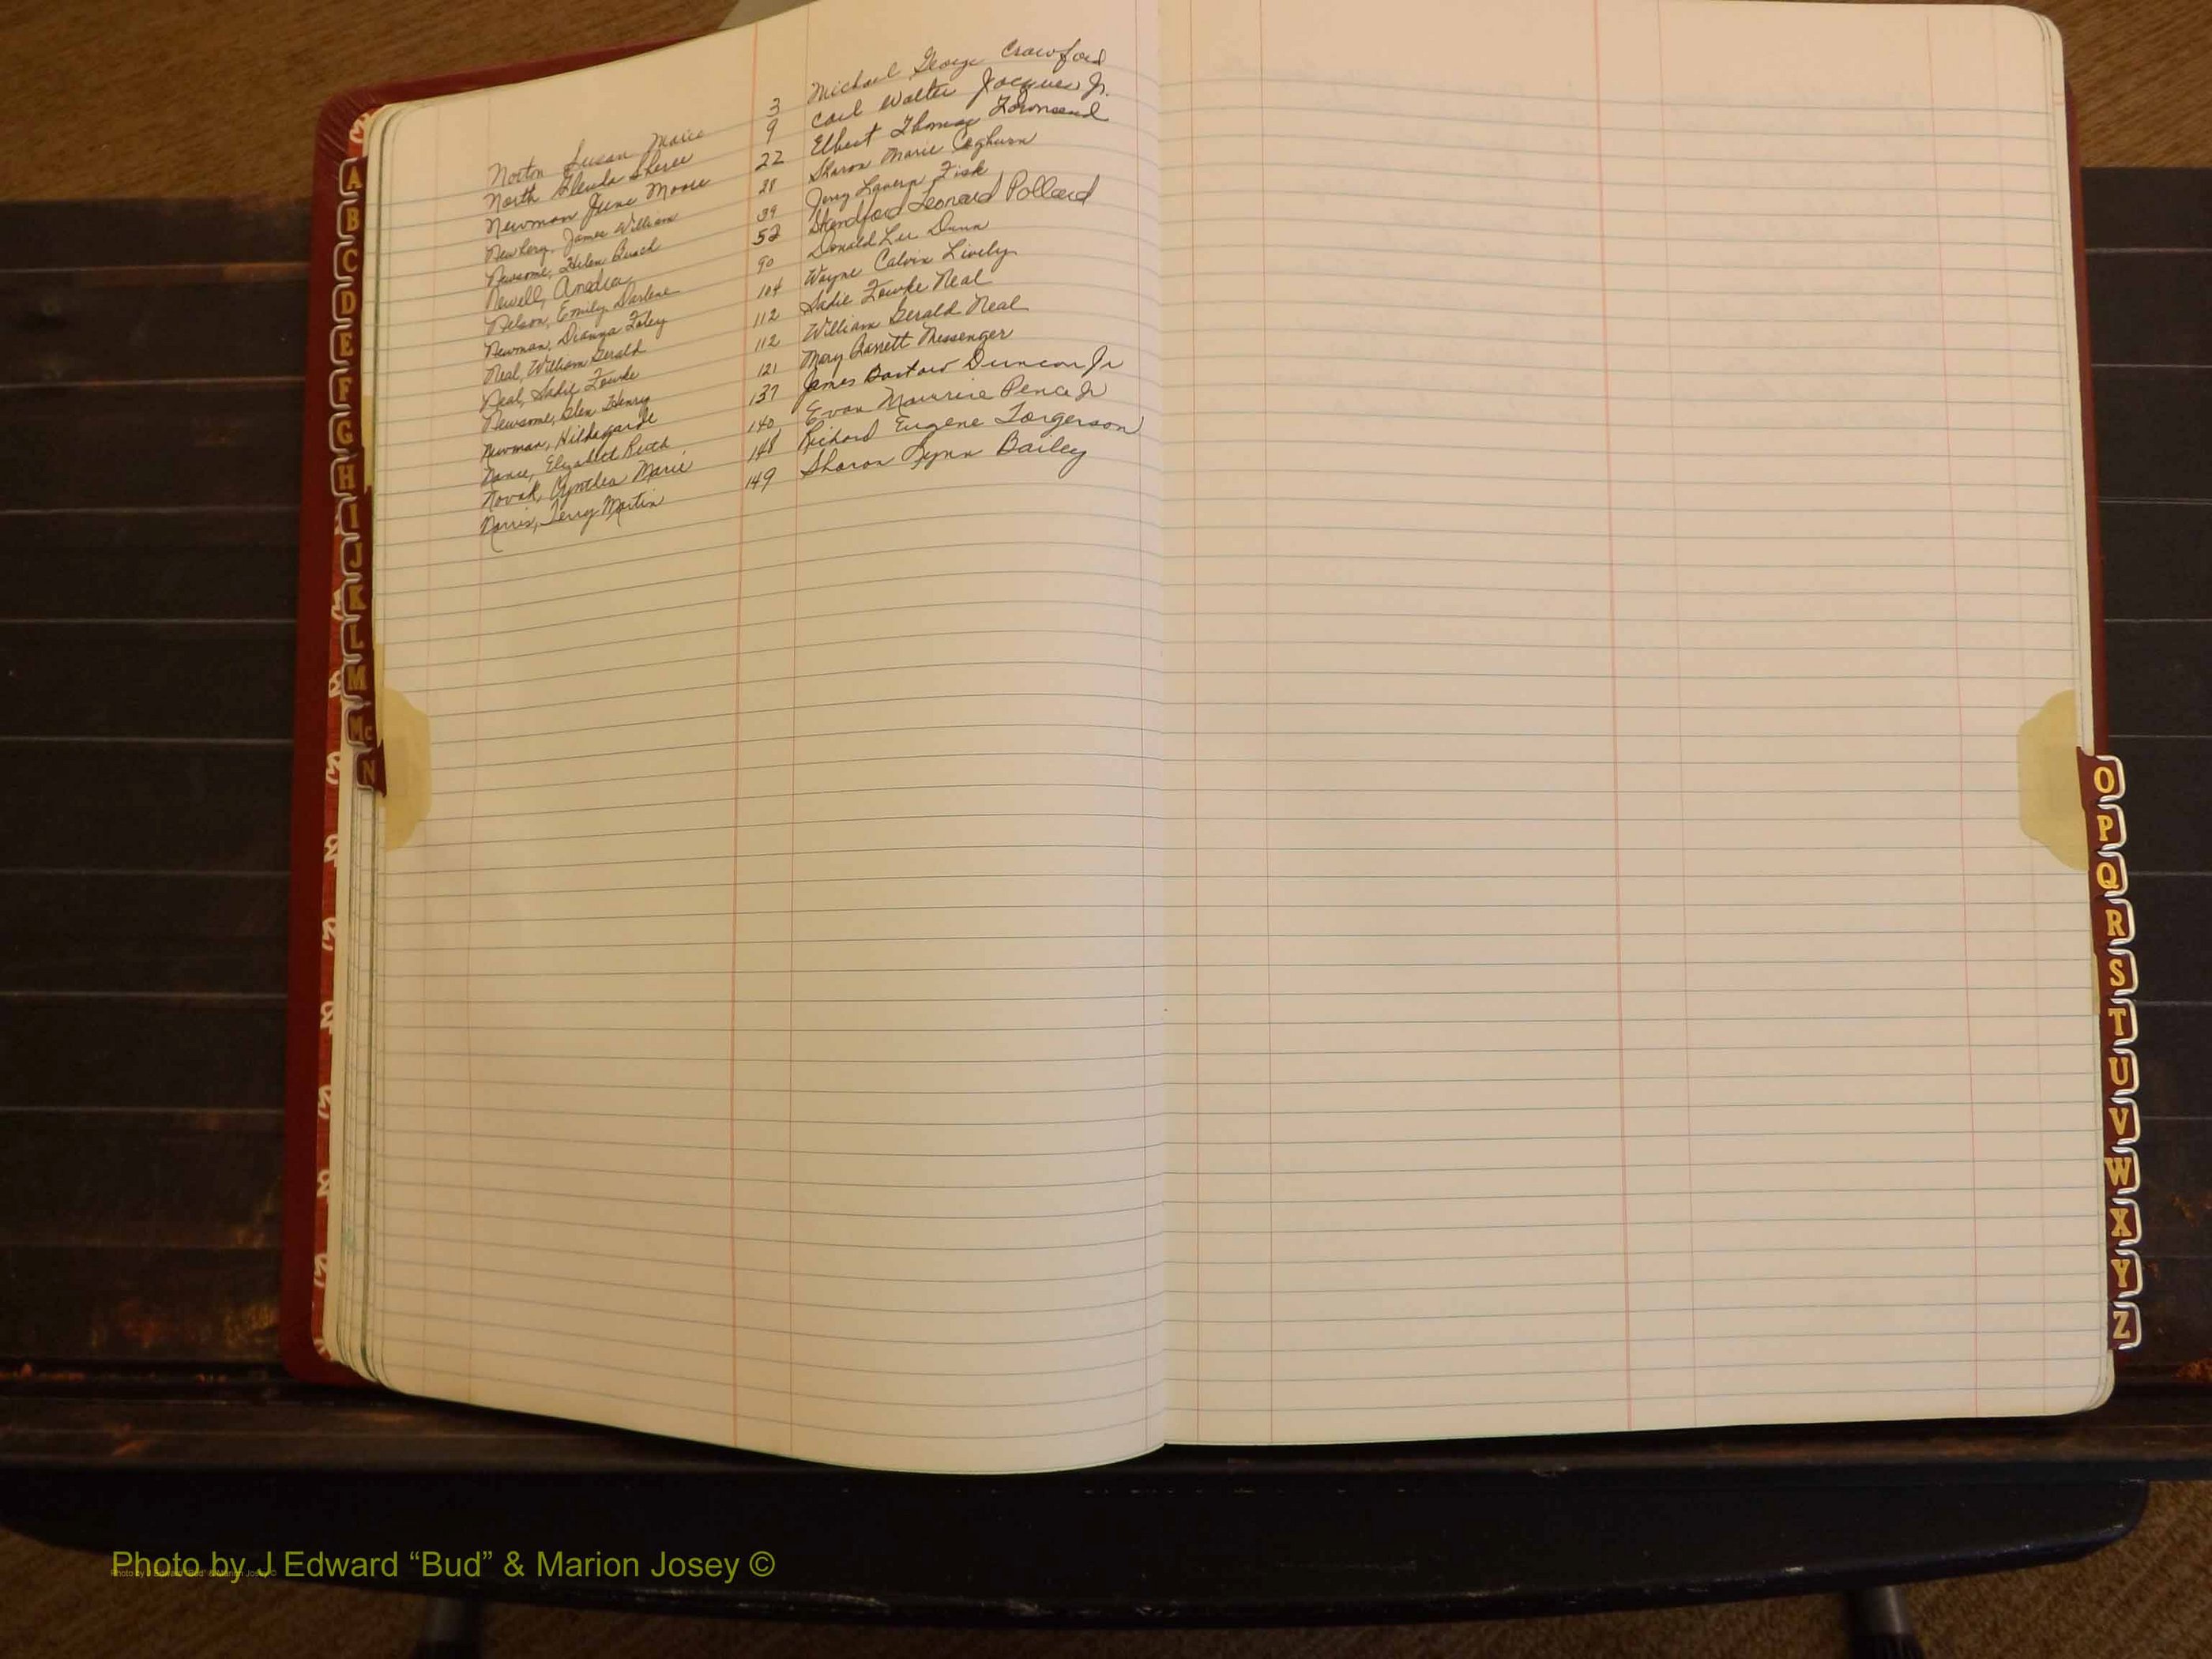 Norton Susan Marie 3 Michael George Crawford
North Glenda Sheree 9 Carl Walter Jacques Jr.
Newman June Moore 22 Elbert Thomas Townsend
Newberg, James William 28 Sharon Marie Coghurn
Newsome, Helen Busch 39 Jerry Lavern Fisk
Newell, Andrea 52 Leonard Pollard
Nelson, Emily Darlene 90 Donald Lee Dunn
Newman, Dianna Foley 104 Wayne Calvin Lively
Neal, William Gerald 112 Sadie Fowke Neal
Neal, Sadie Fowke 112 William Gerald Neal
Newsome, Glen Henry 121 Mary Garrett Messenger
Newman, Hildagarde 137 James Bartow Duncan Jr
Nance, Elizabeth Ruth 140 Evan Maurice Pence Jr
Novak, Cynthia Marie 148 Richard Eugene Torgerson
Norris, Terry Martin 149 Sharon Lynn Bailey
A
B
C
D
E
F
G
H
I
J
K
L
M
Mc
N
O
P
Q
R
S
T
U
V
W
X
Y
Z
Photo by J Edward “Bud” & Marion Josey ©
Photo by J Edward “Bud” & Marion Josey ©